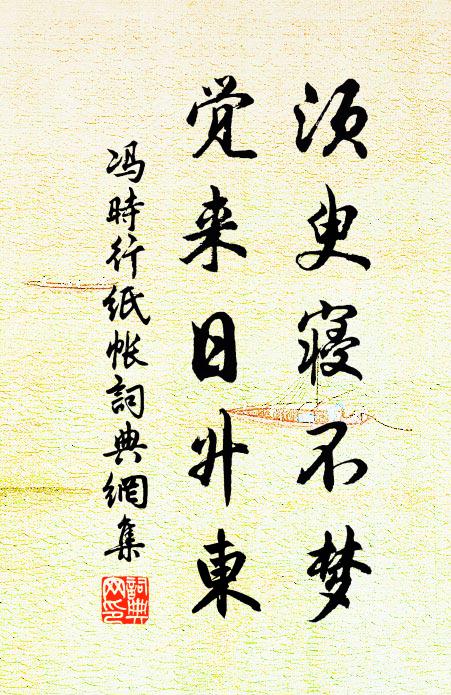 须臾寝不梦
觉来日升東
冯時行纸帐詞典網集
詞典网印